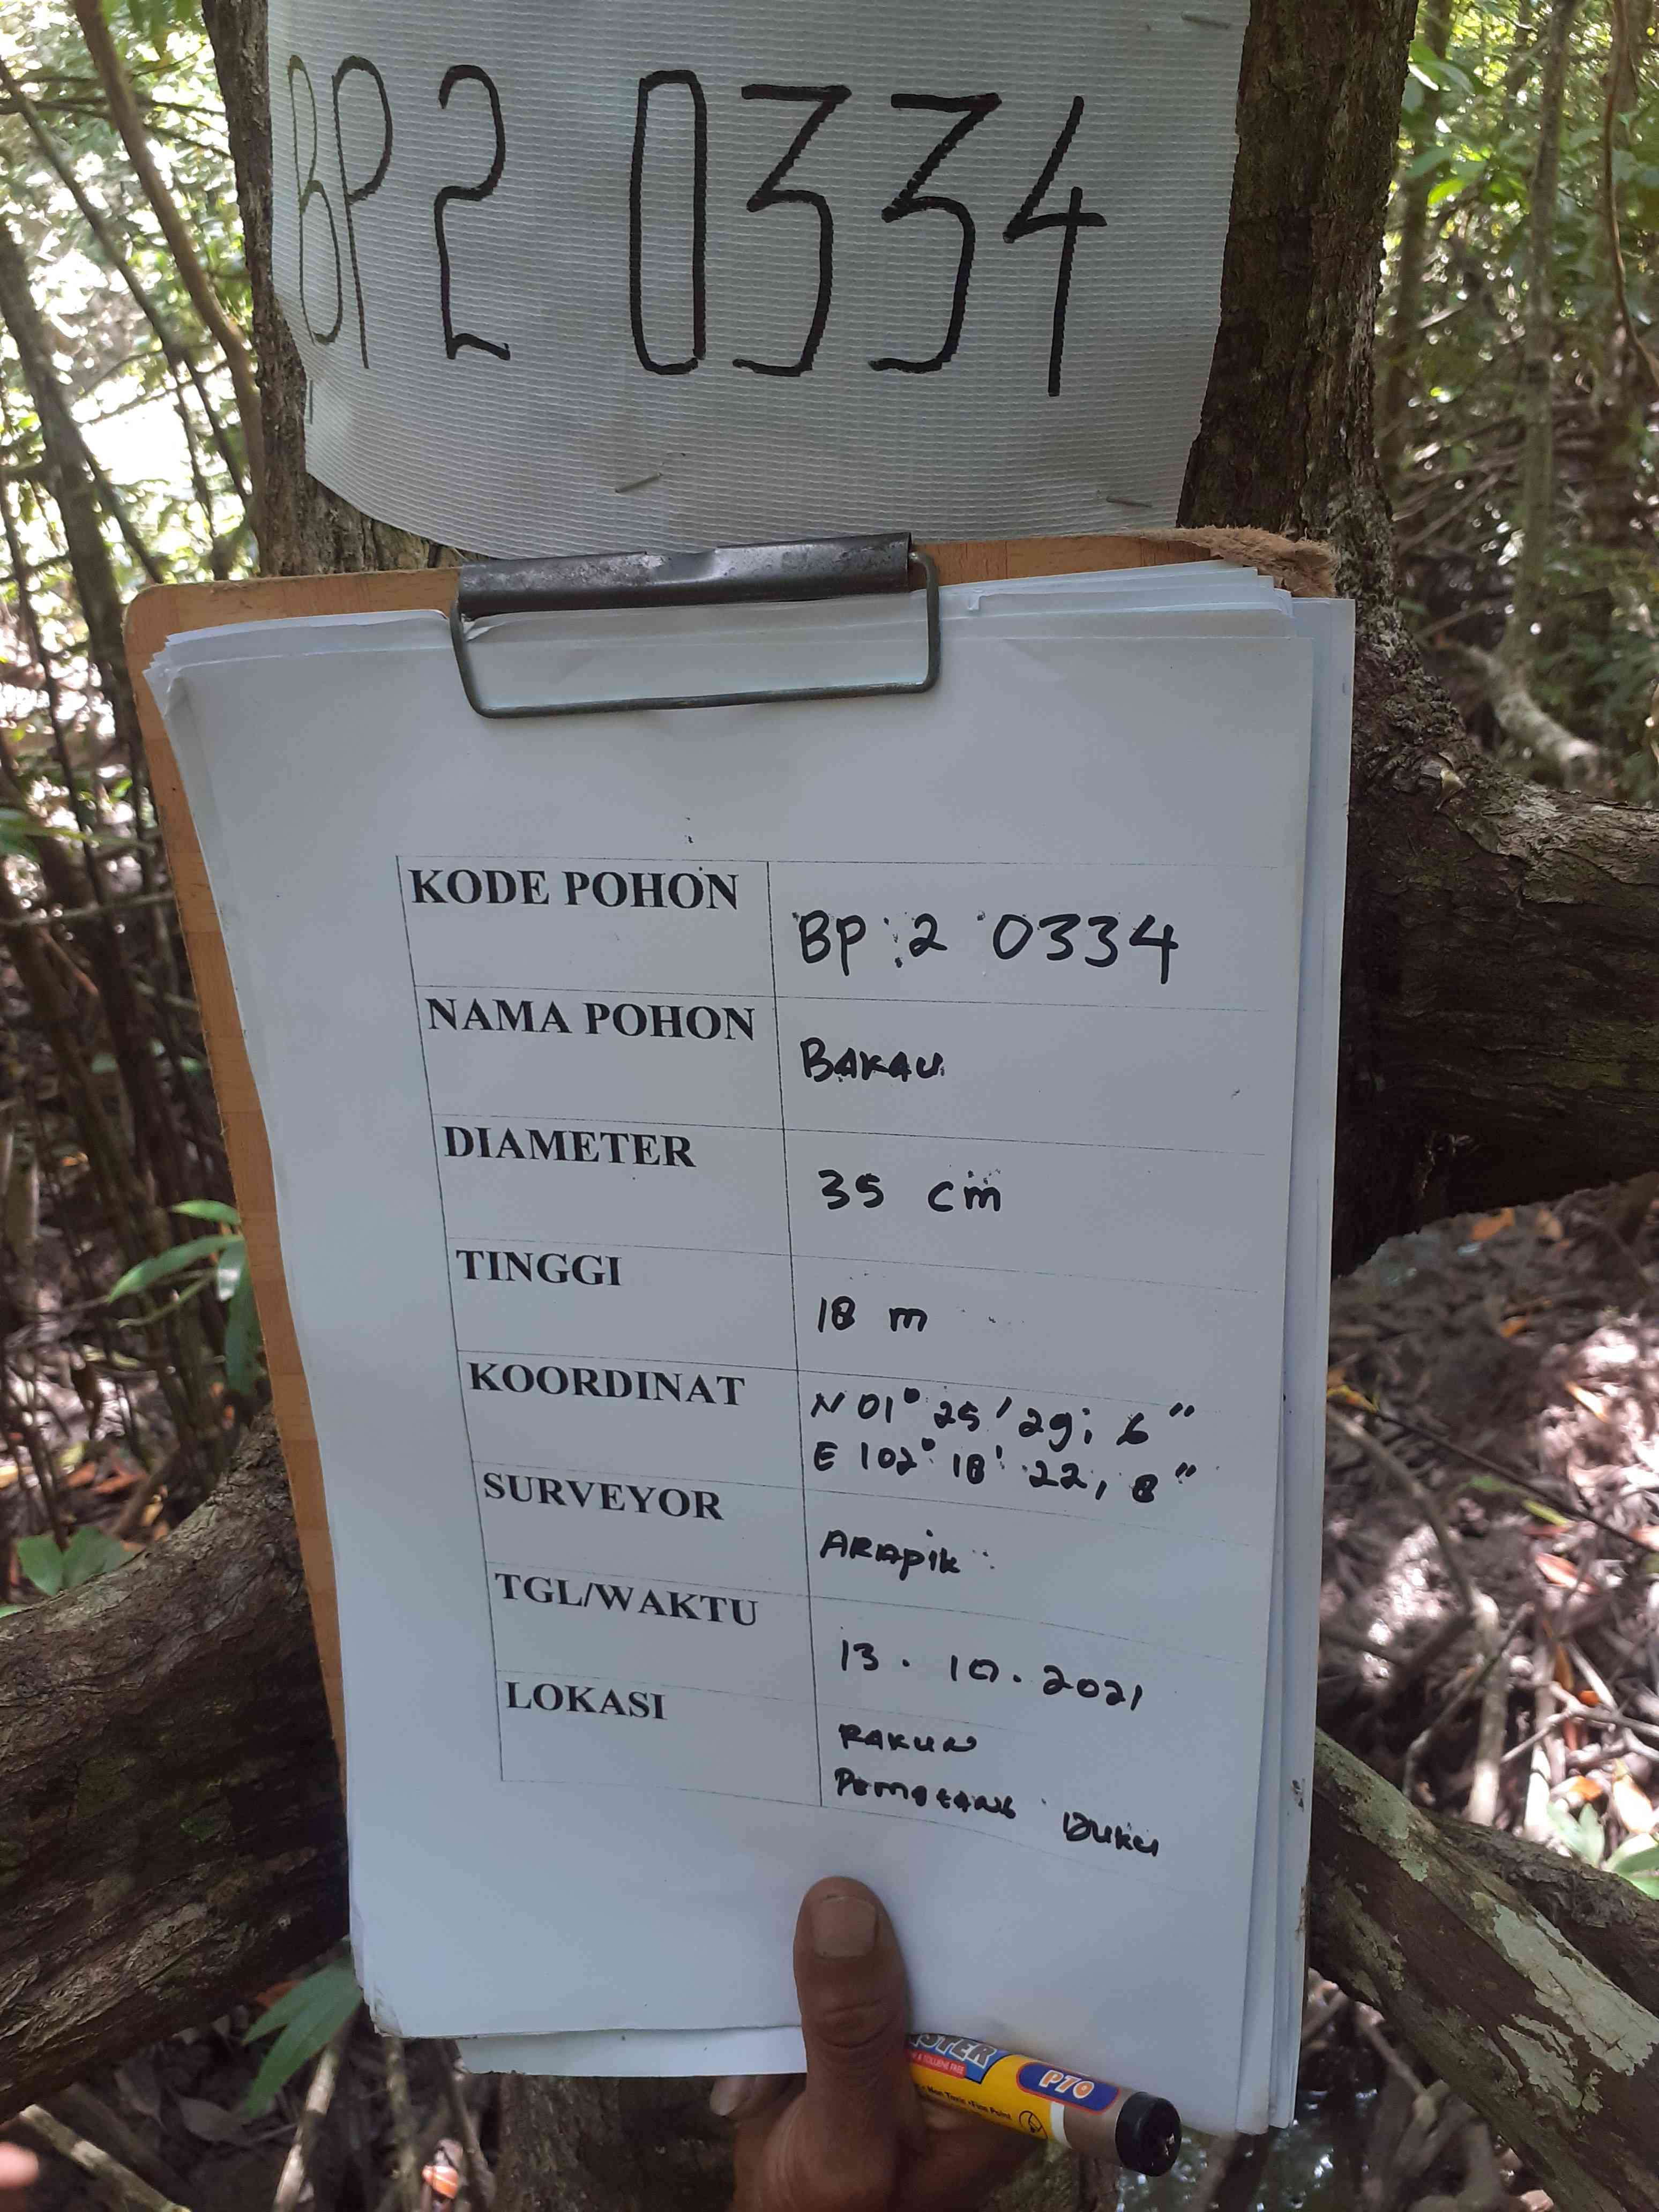 BP2 0334
KODE POHON
BP 2 0334
NAMA POHON
BAKAU
DIAMETER
35 cm
TINGGI
18 m
KOORDINAT
N 01° 25' 29, 6"
E 102° 18' 22, 8"
SURVEYOR
ARAPIK
TGL/WAKTU
13. 10. 2021
LOKASI
RAKUN
BUKU
P70